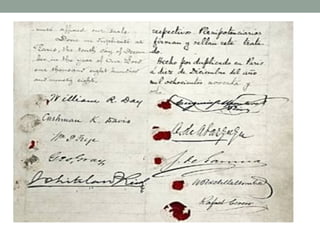 have affixed our seals.
Done in duplicate at
Paris, the tenth day of Decem
ber, in the year of Our Lord
one thousand eight hundred
and ninety eight.
William R. Day
Cushman K. Davis
Wm P. Frye
Geo. Gray
Whitelaw Reid
respectivos Plenipotenciarios
firman y sellan este trata
do.
Hecho por duplicado en Paris
á diez de Diciembre del año
mil ochocientos noventa y
ocho.
J. de Garnica